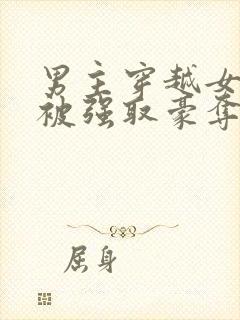 男主穿越女
被强取豪夺
屈身